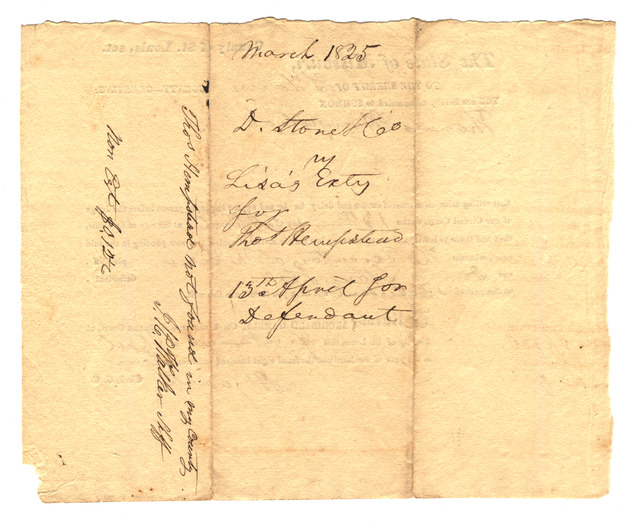 March 1825
D. Stone & Co
vs
Lisa's Exty
for
Thos Hempstead
13th April for
Defendant
Thos Hempstead not found in my County
J. K. Walker Shff
Non Est